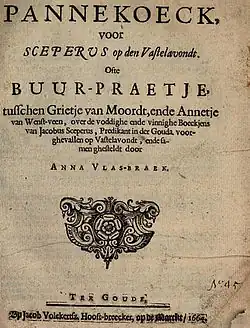 PANNEKOECK,
voor
SCEPERUS op den Vastelavondt.
Ofte
BUUR-PRAETJE,
tusschen Grietje van Moordt, ende Annetje
van Wenst-veen, over de voddighe ende vinnighe Boeckjens
van Jacobus Sceperus, Predikant in der Gouda, voor-
ghevallen op Vastelavondt, ende sa-
men ghesteldt door
ANNA VLAS-BRAEK.
TER GOUDE,
By Jacob Volckertsz, Hooft-breecker, op de Marckt / 1664.